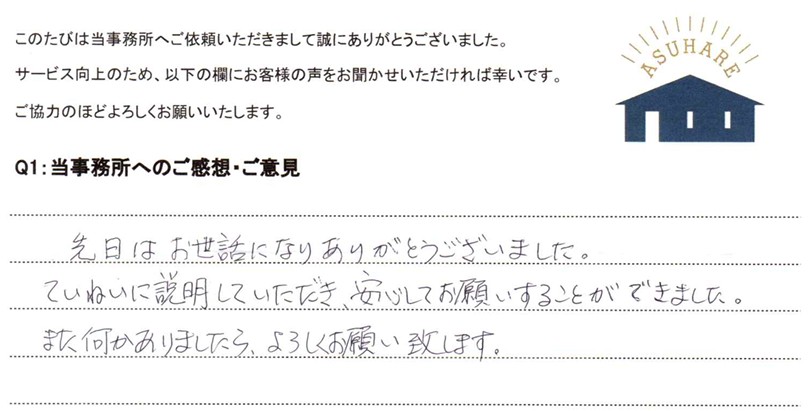 このたびは当事務所へご依頼いただきまして誠にありがとうございました。
サービス向上のため、以下の欄にお客様の声をお聞かせいただければ幸いです。
ご協力のほどよろしくお願いいたします。
ASUHARE
Q1：当事務所へのご感想・ご意見
先日はお世話になりありがとうございました。
ていねいに説明していただき、安心してお願いすることができました。
また何かありましたら、よろしくお願い致します。